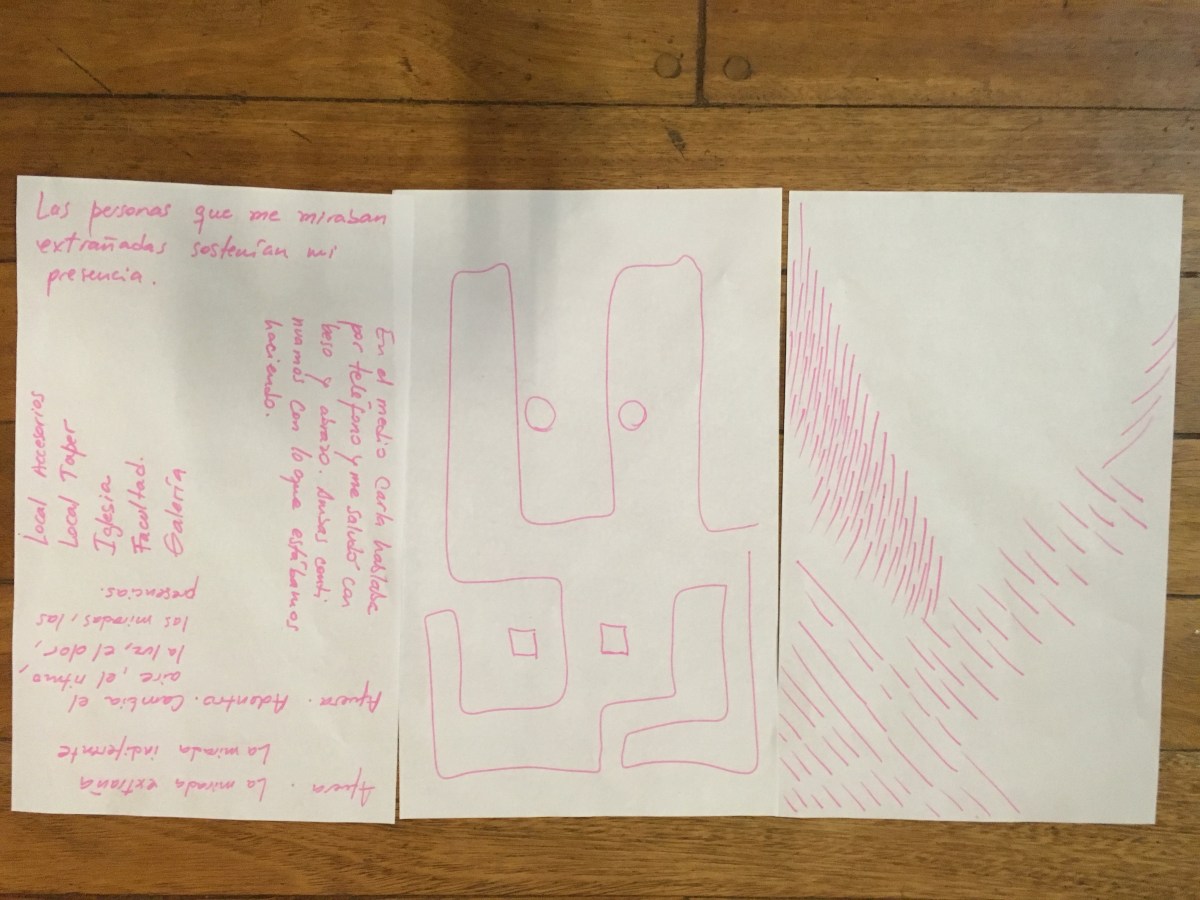 Las personas que me miraban
extrañadas sostenían mi
presencia.
En el medio Carla hablaba
por teléfono y me saludó con
beso y abrazo. Ambas conti
nuamos con lo que estábamos
haciendo.
Local Accesorios
Local Taper
Iglesia
Facultad.
Galería
Afuera. La mirada extraña
La mirada indiferente
Afuera. Adentro. Cambia el
aire, el ritmo,
la luz, el olor,
las miradas, las
presencias.